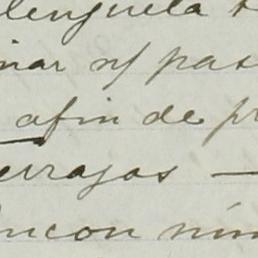 lenguela
inar n/ pas
a fin de pr
errajas —
incon nin